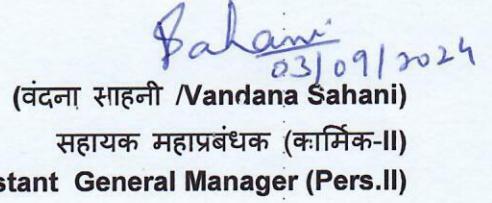 Sahani
03/09/2024
(वंदना साहनी /Vandana Sahani)
सहायक महाप्रबंधक (कार्मिक-II)
stant General Manager (Pers.II)